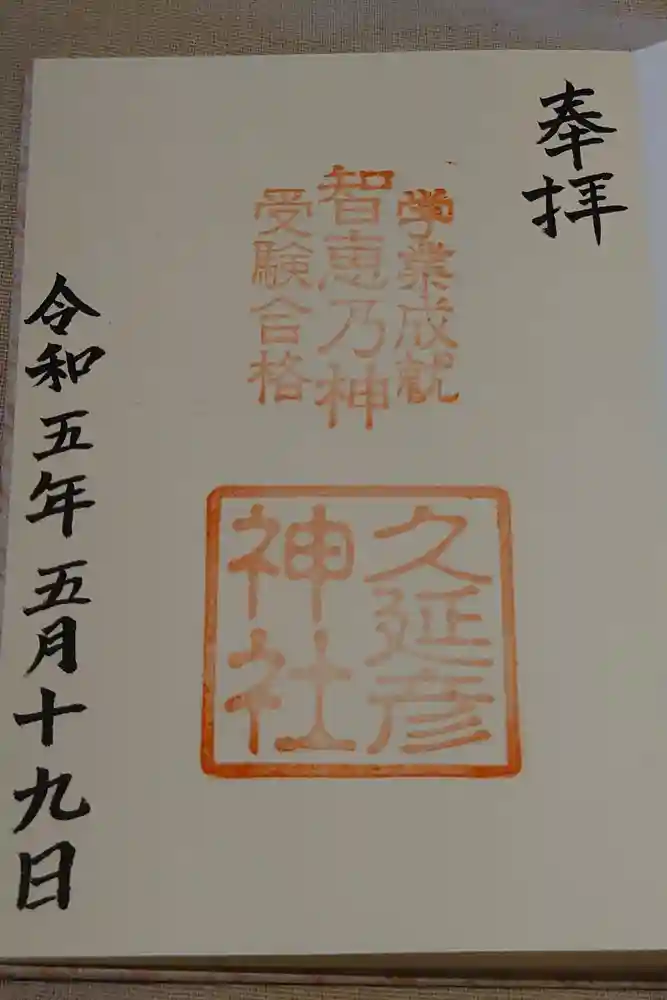 奉拝
学業成就
智恵乃神
受験合格
久延彦
神社
令和五年五月十九日